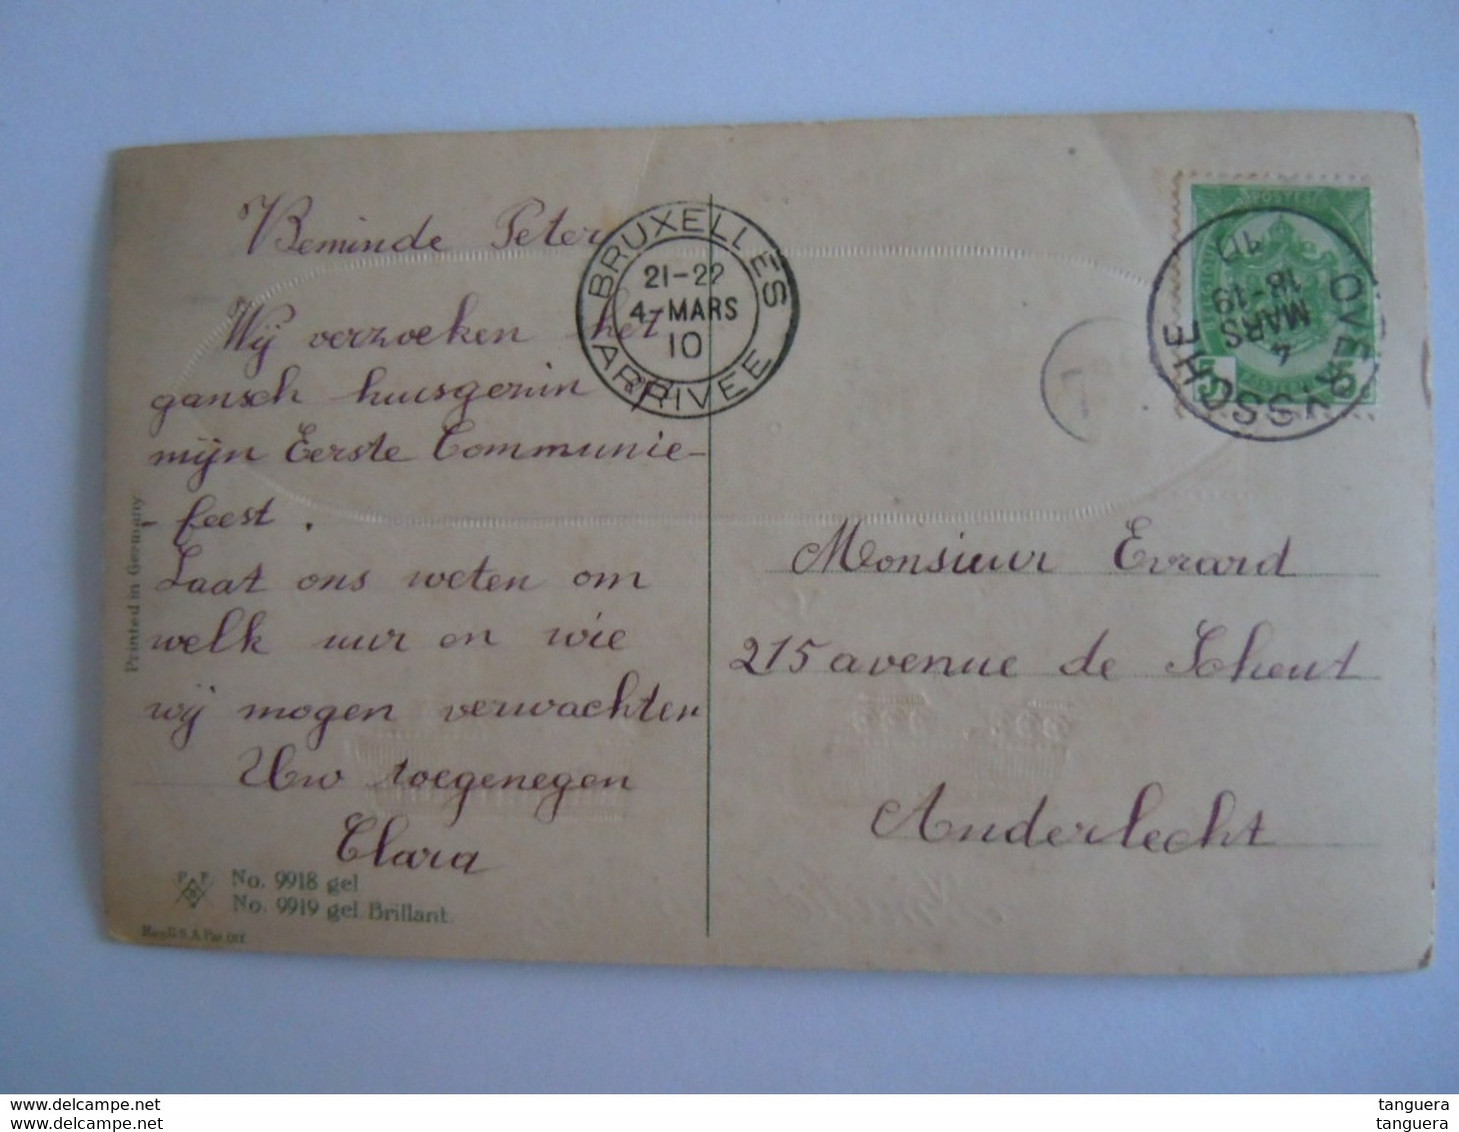 Beminde Peter
Wij verzoeken het
gansch huisgezin op
mijn Eerste Communie-
- feest.
Laat ons weten om
welk uur en wie
wij mogen verwachten
Uw toegenegen
Clara
Printed in Germany
P. P.
No. 9918 gel
No. 9919 gel Brillant.
BRUXELLES
21-22
4-MARS
10
ARRIVEE
OVERYSSCHE
4
MARS
18-19
10
7
5
Monsieur Evrard
215 avenue de Scheut
Anderlecht
tanguera
tanguera
tanguera
tanguera